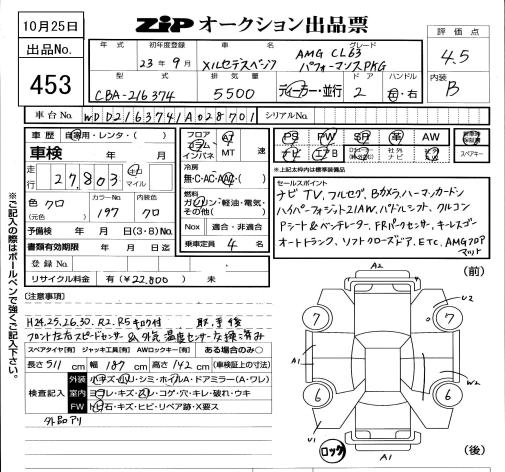 10月25日
ZIPオークション出品票
評価点
4.5
出品No.
453
年式
初年度登録
23年9月
車名
メルセデスベンツ
グレード
AMG CL63
パフォーマンスPKG
内装
B
型式
CBA-216374
排気量
5500
ドア
2
ハンドル
左・右
ディーラー・並行
車台No.
WDD2163741A028701
シリアルNo.
車歴
自家用・レンタ・( )
車検
年 月
走行
27,803
キロ
マイル
色 クロ
(元色)
カラーNo.
197
内装色
クロ
予備検 年 月 日(3・8)No.
書類有効期限 年 月 日迄
登録No.
リサイクル料金 有(¥22,800) 未
フロア
コラム
インパネ
AT
MT
速
冷房
無・C・AC・AAC・( )
燃料
ガソリン・軽油・電気・
その他( )
Nox 適合・非適合
乗車定員 4 名
PS PW SR 革 AW
ナビ エアB 社外ナビ 社外革 スペアキー
*上記太枠内は標準装備品
セールスポイント
ナビTV、フルセグ、Bカメラ、ハーマンカードン
ハイパーフォジット21AW、パドルシフト、クルコン
Pシート&ベンチレーター、FRパークセンサー、キーレスゴー
オートトランク、ソフトクローズドア、ETC、AMGフロア
マット
※ご記入の際はボールペンで強くご記入下さい。
[注意事項]
H24.25.26.30.R2.R5キロク付 取、手後
フロント左右スピードセンサー&外気温度センサー交換済み
スペアタイヤ[有] ジャッキ工具[有] AWロックキー[有] ある場合のみ○
長さ511cm 幅187cm 高さ142cm (車検証上の寸法)
検査記入
外装 小キズ・凹・シミ・ホイルA・ドアミラー(A・ワレ)
室内 ヨゴレ・キズ・スレ・コゲ・穴・キレ・破れ・ウキ
FW トビ石・キズ・ヒビ・リペア跡・X要ス
外品アリ
(前)
A2
U2
7
7
A1
W2
6
6
U1
A1
ロック
(後)